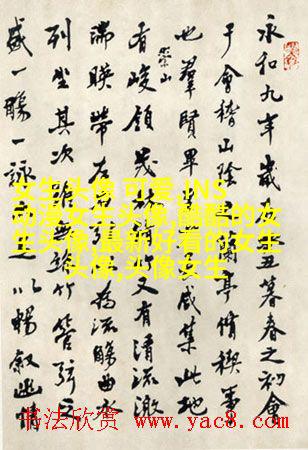 永和九年歲丑暮春之初會
于會稽山陰蘭亭脩禊事
也羣賢畢咸集此地
有崇山峻領茂林又有清流激
湍暎帶左為流觴曲水
列坐其次竹管弦之
盛一觴一詠以暢敘幽情
女生头像 可爱,INS
动漫女生头像,酷酷的女
生头像,最新好看的女生
头像,头像女生
书法欣赏 www.yac8.com